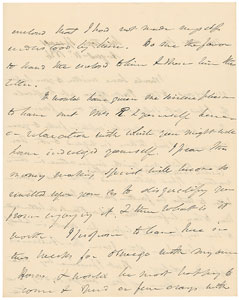 that I had not made myself
understood by them. Do me the favor
to hand the enclosed to him & show him the
letter.
It would have given me sincere pleasure
to have met Mrs R & yourself here
on relaxation with which you might well
have indulged yourself. I fear the
money making spirit will become so
upon you as to disqualify you
from enjoying it & then what is it
worth. I propose to leave here in
this week for with my own
Horses & would be most happy to
come & spend a few days with